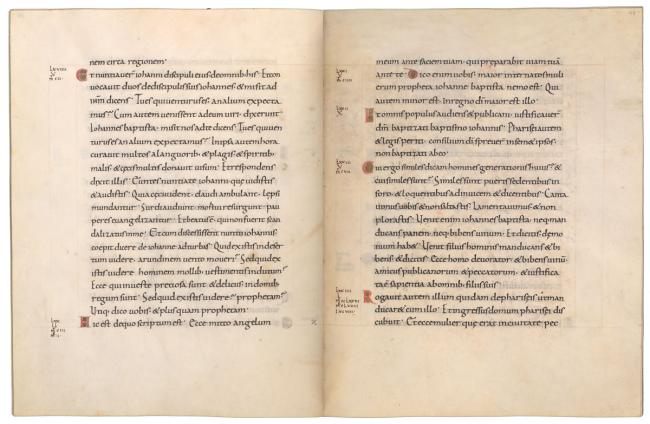 nem circa regionem·
Et nuntiaver̄ iohanni discipuli eius de omnib· his· Et con
vocavit duos de discipulis suis iohannes· & misit ad
dicens· Tu es qui venturus es· an alium expecta
mus? Cum autem venissent ad eum viri· dixerunt·
Iohannes baptista· misit nos ad te dicens· Tu es qui ven
turus es· an alium expectamus? In ipsa autem hora
curavit multos a languorib· & plagis· & spiritib·
malis· & cecis multis donavit visum· Et respondens
dixit illis· Euntes nuntiate iohanni que vidistis
& audistis· Quia ceci vident· claudi ambulant· lepsi
mundantur· Surdi audiunt· mortui resurgunt· pau
peres evangelizantur· Et beatus ē· qui non fuerit scan
dalizatus in me· Et cum discessissent nuntii iohannis·
coepit dicere de iohanne ad turbas· Quid existis in deser
tum videre· arundinem vento moveri? Sed quid ex
istis videre· hominem mollib· vestimentis indutum?
Ecce qui in veste preciosa sunt & deliciis· in domib·
regum sunt· Sed quid existis videre? prophetam?
Utiq· dico vobis· & plus quam prophetam·
Hic est de quo scriptum est· Ecce mitto angelum
meum ante faciem tuam· qui preparabit viam tuā
ante te· Dico enim vobis· maior inter natos muli
erum propheta· iohanne baptista· nemo est· Qui
autem minor est· in regno dī maior est illo·
Et omnis populus audiens & publicani· iustificaver̄
dm̄· baptizati baptismo iohannis· Pharisei autem
& legis periti· consilium dī spreverī in semet ipsos·
non baptizati ab eo·
Cui ergo similes dicam homines generationis huius? &
cui similes sunt? Similes sunt pueris sedentibus in
foro· & loquentibus ad invicem & dicentibus· Canta
vimus vobis & non saltastis· Lamentavimus· & non
plorastis· Venit enim iohannes baptista· neq· man
ducans panem· neq· bibens vinum· Et dicitis· demo
nium habe&· Venit filius hominis manducans & bi
bens· & dicitis· Ecce homo devorator· & bibens vinū·
amicus publicanorum & peccatorum· & iustifica
ta ē sapientia ab omnib· filiis suis·
Rogavit autem illum quidam de phariseis· ut man
ducar& cum illo· Et ingressus domum pharisei dis
cubuit· Et ecce mulier que erat in civitate pec